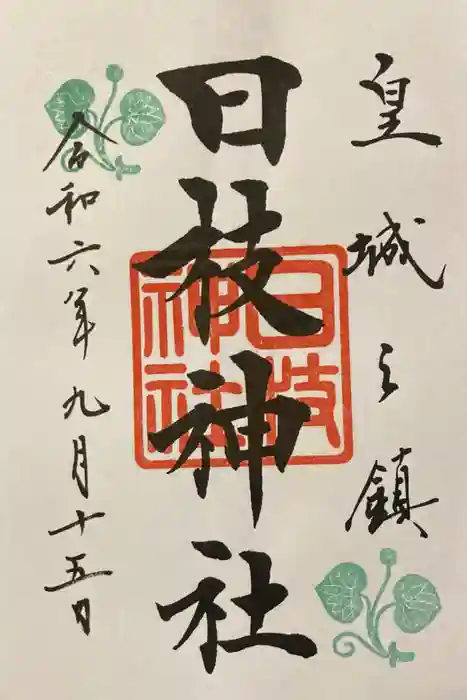 皇城之鎮
日枝神社
日枝神社
令和六年九月十五日